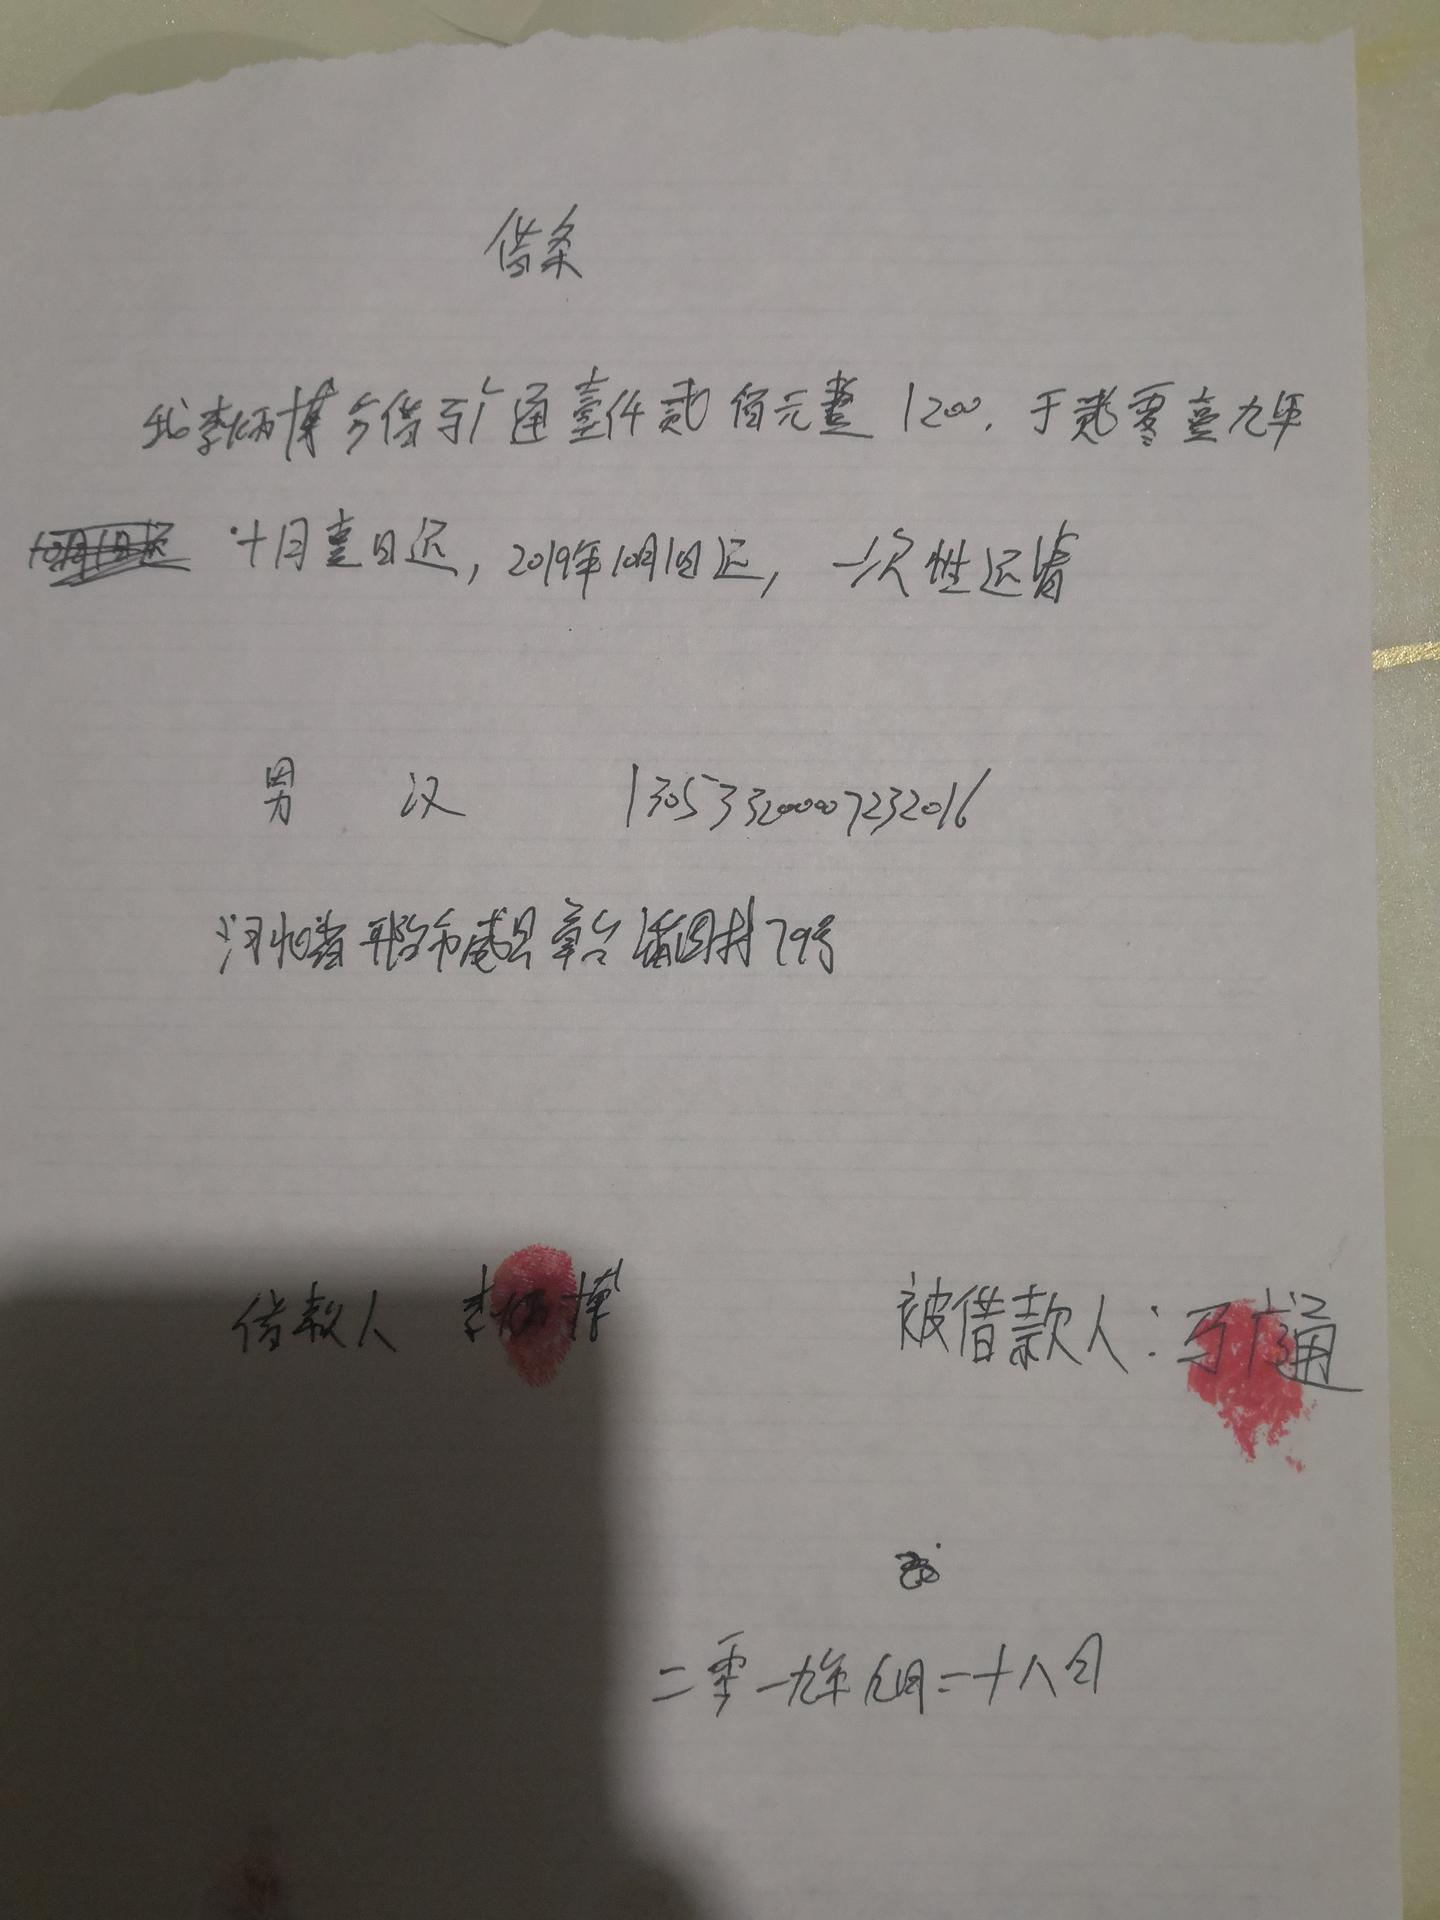 借条
我李炳博今借马广通壹仟贰佰元整 1200. 于贰零壹九年
十月壹日还, 2019年10月1日还, 一次性还清
男 汉 130533200007232016
河北省邢台市威县章台镇 村79号
借款人 李炳博 被借款人: 马广通
二零一九年九月二十八日